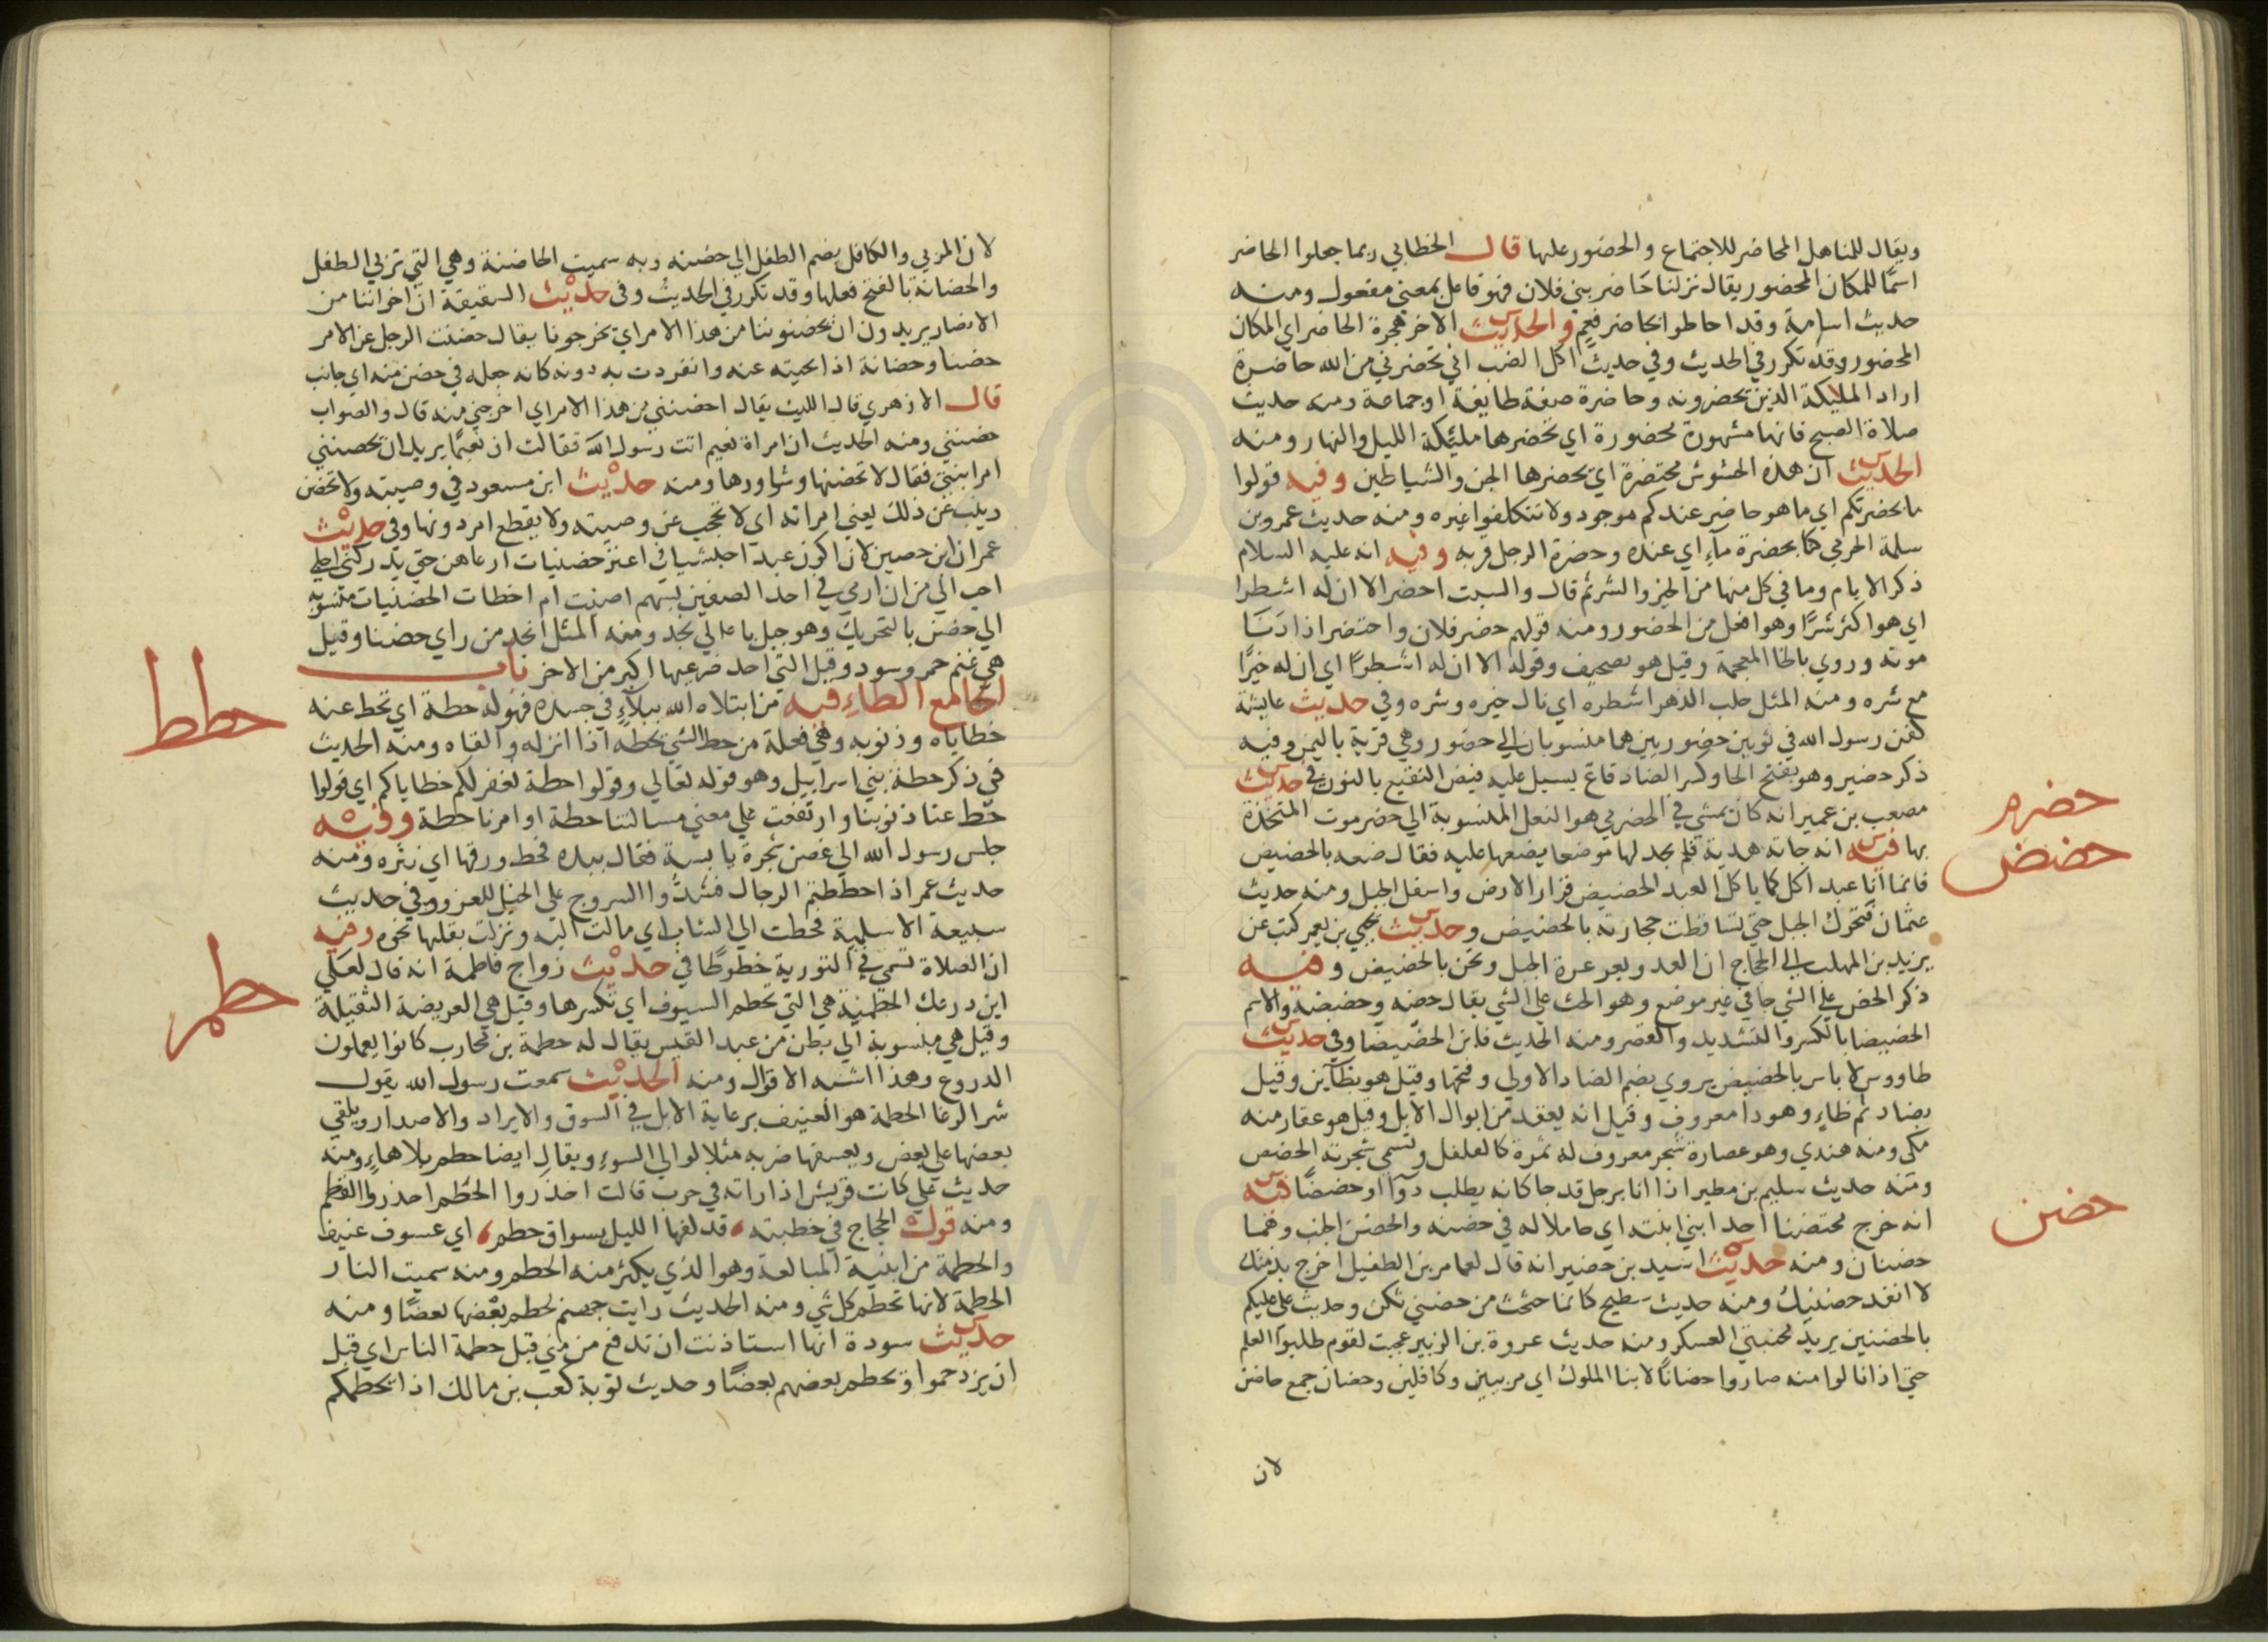 ويقال للمناهل المحاضر للاجتماع والحضور عليها قال الخطابي ربما جعلوا الحاضر
اسمًا للمكان المحضور يقال نزلنا حاضر بني فلان فهو فاعل بمعني مفعول ومنه
حديث اسامة وقد احاطوا بحاضر فعم والحديث الاخر هجرة الحاضر اي المكان
المحضور وقد تكرر في الحديث وفي حديث اكل الضب اني تحضرني من الله حاضرة
اراد المليكة الذين يحضرونه وحاضرة صفة طايفة او جماعة ومنه حديث
صلاة الصبح فانها مشهودة محضورة اي تحضرها مليكة الليل والنهار ومنه
الحديث ان هذه الحشوش محتضرة اي يحضرها الجن والشياطين وفيه قولوا
ما بحضرتكم اي ما هو حاضر عندكم موجود ولا تتكلفوا غيره ومنه حديث عمرو بن
سلمة الجرمي كنا بحضرة ماء اي عنده وحضرة الرجل قربه وفيه انه عليه السلام
ذكر الايام وما في كل منها من الخير والشر ثم قال والسبت احضر الا ان له اشطرا
اي هو اكثر شرًا وهو افعل من الحضور ومنه قولهم حضر فلان واحتضر اذا دنا
موته وروي بالخا المعجمة وقيل هو تصحيف وقوله الا ان له اشطرًا اي ان له خيرًا
مع شره ومنه المثل حلب الدهر اشطره اي نال خيره وشره وفي حديث عايشة
كفن رسول الله في ثوبين حضوريين هما منسوبان الي حضور وهي قرية باليمن وفيه
ذكر حضير وهو بفتح الحا وكسر الضاد قاع يسيل عليه فيض النقيع بالنون في حديث
حضرم
مصعب بن عمير انه كان يمشي في الحضرمي هو النعل المنسوبة الي حضرموت المتخذة
حضض
بها فيه انه جاته هدية فلم يجد لها موضعا يضعها عليه فقال ضعه بالحضيض
فانما انا عبد اكل كما ياكل العبد الحضيض قرار الارض واسفل الجبل ومنه حديث
عثمان فتحرك الجبل حتي تساقطت حجارته بالحضيض وحديث يحيي بن يعمر كتب عن
يزيد بن المهلب الي الحجاج ان العدو بعرعرة الجبل ونحن بالحضيض وفيه
ذكر الحض علي الشي جا في غير موضع وهو الحث علي الشي يقال حضه وحضضه والاسم
الحضيضا بالكسر والتشديد والقصر ومنه الحديث فاين الحضيضا وفي حديث
طاووس لا باس بالحضض يروي بضم الضاد الاولي وفتحها وقيل هو بظاين وقيل
بضاد ثم ظاء وهو دا معروف وقيل انه يعقد من ابوال الابل وقيل هو عقار منه
مكي ومنه هندي وهو عصارة شجر معروف له ثمرة كالفلفل وتسمي شجرته الحضض
ومنه حديث سليم بن مطير اذا انا برجل قد جا كانه يطلب دوآ او حضضًا فيه
حضن
انه خرج محتضنا احد ابني ابنته اي حاملا له في حضنه والحضن الجنب وهما
حضنان ومنه حديث اسيد بن حضير انه قال لعامر بن الطفيل اخرج بذمتك
لا انفد حضنيك ومنه حديث سطيح كانما حثحث من حضني ثكن وحديث علي عليكم
بالحضنين يريد مجنبتي العسكر ومنه حديث عروة بن الزبير عجبت لقوم طلبوا العلم
حتي اذا نالوا منه صاروا حضانًا لابنا الملوك اي مربيين وكافلين وحضان جمع حاضن
لان
لان المربي والكافل يضم الطفل الي حضنه وبه سميت الحاضنة وهي التي تربي الطفل
والحضانة بالفتح فعلها وقد تكرر في الحديث وفي حديث السقيفة ان اخواننا من
الانصار يريدون ان يحضنوننا من هذا الامر اي يخرجونا يقال حضنت الرجل عن الامر
حضنا وحضانة اذا نحيته عنه وانفردت به دونه كانه جعله في حضن منه اي جانب
قال الازهري قال الليث يقال احضنني من هذا الامر اي اخرجني منه قال والصواب
حضنني ومنه الحديث ان امراة نعيم اتت رسول الله فقالت ان نعيمًا يريد ان يحضنني
امر ابنتي فقال لا تحضنها وشاورها ومنه حديث ابن مسعود في وصيته ولا تحضن
زينب عن ذلك يعني امراته اي لا تحجب عن وصيته ولا يقطع امر دونها وفي حديث
عمران ابن حصين لان اكون عبدا حبشيا في اعنز حضنيات ارعاهن حتي يدركني اجلي
احب الي من ان ارمي في احد الصفين بسهم اصبت ام اخطات الحضنيات منسوبة
الي حضن بالتحريك وهو جبل باعالي نجد ومنه المثل انجد من راي حضنا وقيل
هي غنم حمر وسود وقيل التي احد ضرعيها اكبر من الاخر باب
حطط
الحا مع الطاء فيه من ابتلاه الله ببلآء في جسده فهو له حطة اي تحط عنه
خطاياه وذنوبه وهي فعلة من حط الشي يحطه اذا انزله والقاه ومنه الحديث
في ذكر حطة بني اسراييل وهو قوله تعالي وقولوا حطة نغفر لكم خطاياكم اي قولوا
حط عنا ذنوبنا وارتفعت علي معني مسالتنا حطة او امرنا حطة وفيه
جلس رسول الله الي غصن شجرة يابسة فقال بيده فحط ورقها اي نثره ومنه
حديث عمر اذا حططتم الرحال فشدُّوا السروج علي الخيل للغزو وفي حديث
سبيعة الاسلمية فحطت الي الشاب اي مالت اليه ونزلت بقلبها نحوه وفيه
ان الصلاة تسمي في التورية حطوطًا في حديث زواج فاطمة انه قال لعلي
حطم
اين درعك الحطمية هي التي تحطم السيوف اي تكسرها وقيل هي العريضة الثقيلة
وقيل هي منسوبة الي بطن من عبد القيس يقال له حطمة بن محارب كانوا يعملون
الدروع وهذا اشبه الاقوال ومنه الحديث سمعت رسول الله يقول
شر الرعا الحطمة هو العنيف برعاية الابل في السوق والايراد والاصدار ويلقي
بعضها علي بعض ويعسفها ضربه مثلا لوالي السوء ويقال ايضا حطم بلا هاءٍ ومنه
حديث علي كانت قريش اذا راته في حرب قالت احذروا الحُطم احذروا القطم
ومنه قول الحجاج في خطبته قد لفها الليل بسواق حطم اي عسوف عنيف
والحطمة من ابنية المبالغة وهو الذي يكثر منه الحطم ومنه سميت النار
الحطمة لانها تحطم كل شي ومنه الحديث رايت جهنم يحطم بعضها بعضًا ومنه
حديث سودة انها استاذنت ان تدفع من مني قبل حطمة الناس اي قبل
ان يزدحموا ويحطم بعضهم بعضًا وحديث توبة كعب بن مالك اذا يحطمكم